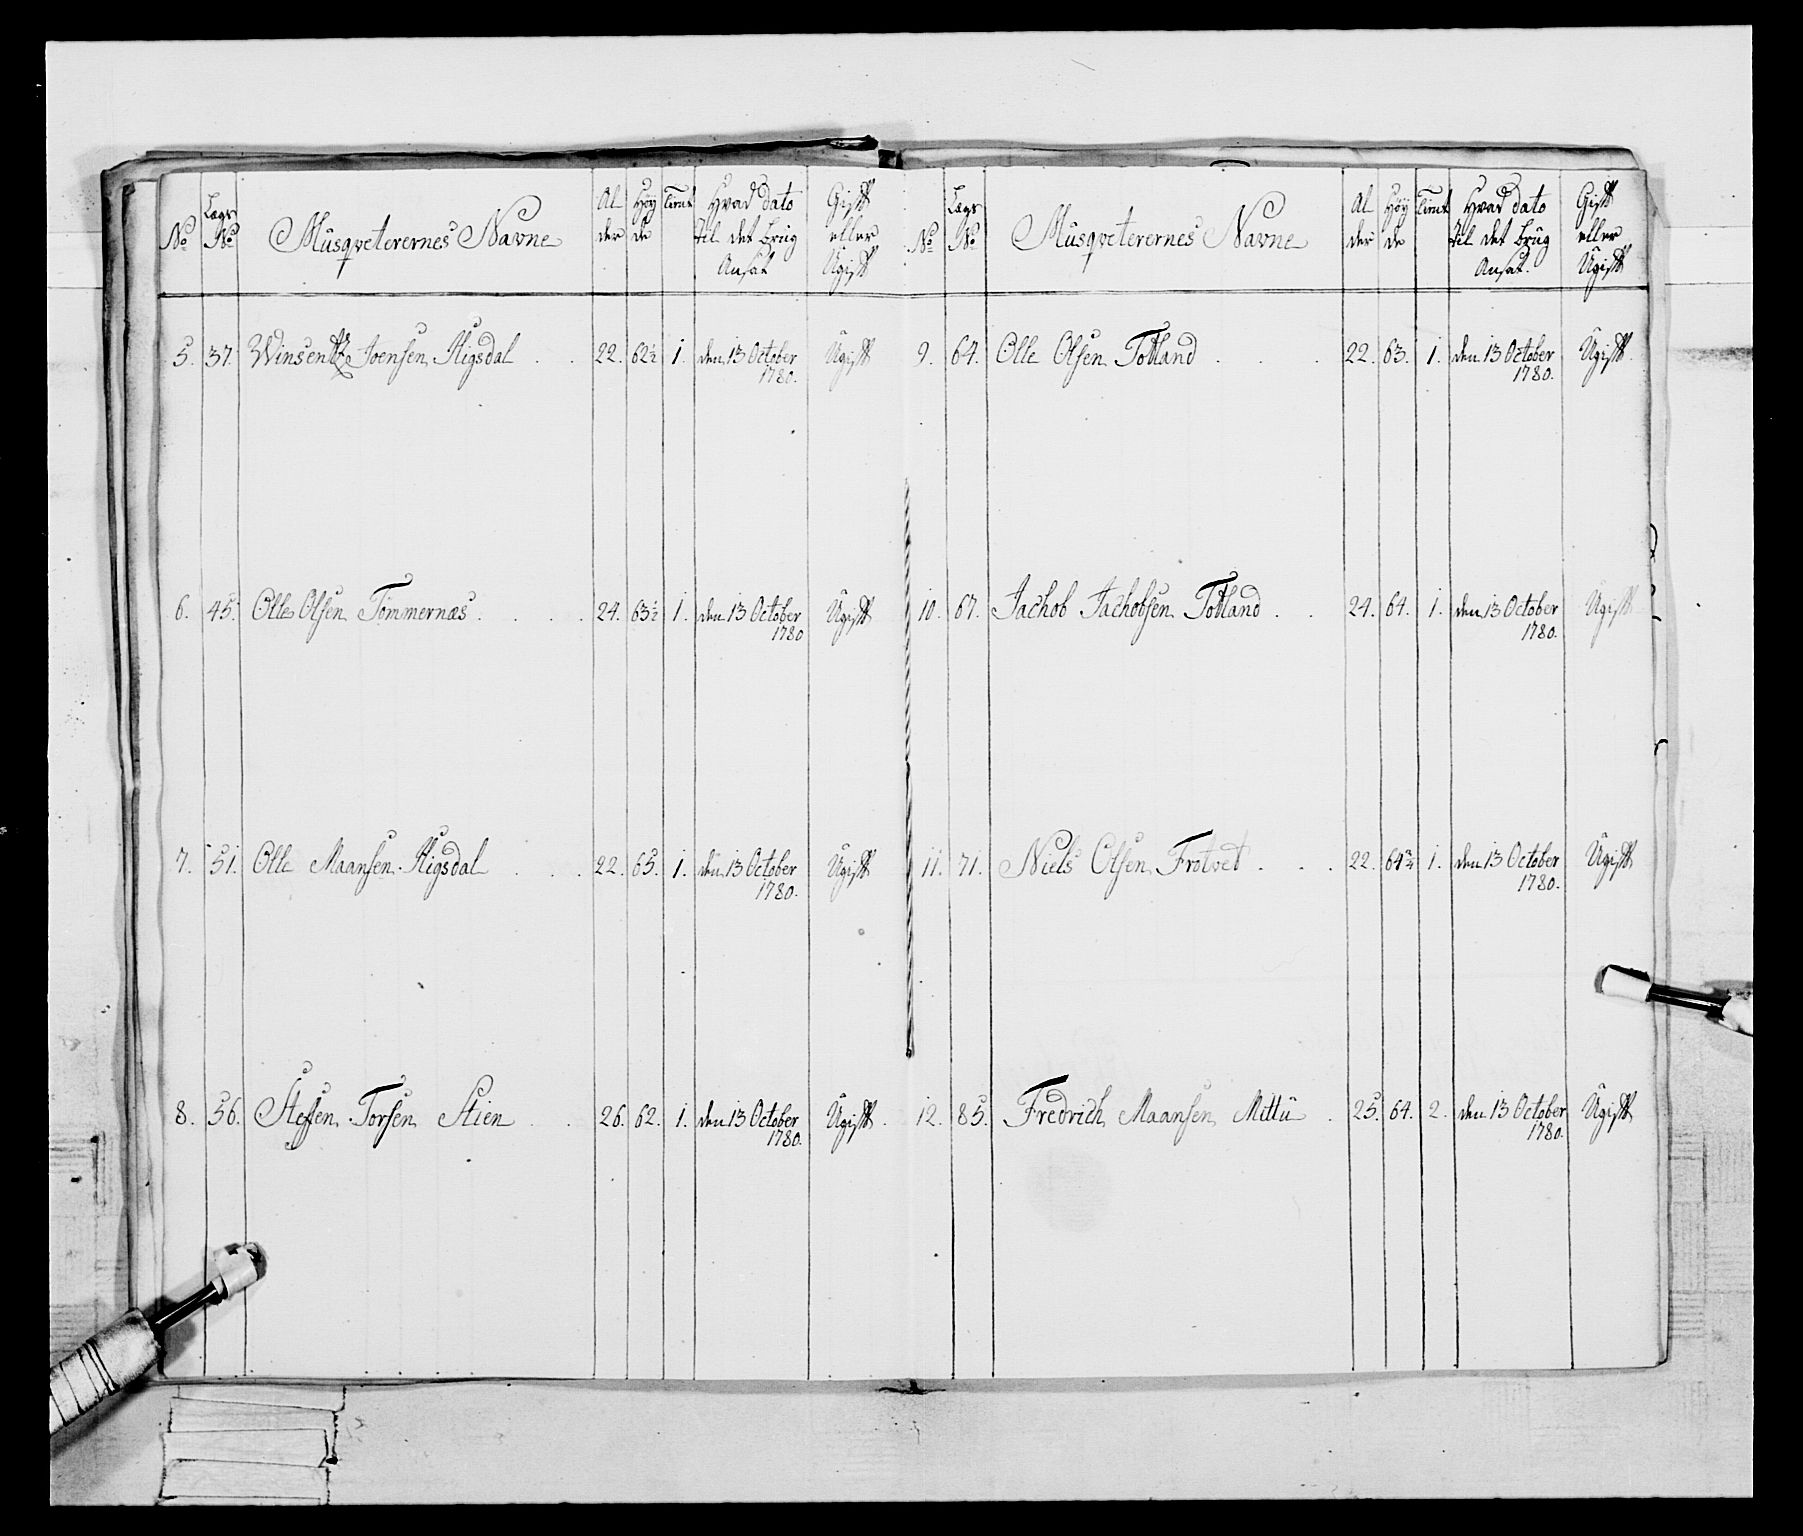 No Lægs No Musqveterernes Navne Al der Höy de Tient Hvad dato til det brüg Ansat Gift eller Ügift
5. 37. Winsentz Joensen Higsdal . . 22. 62½ 1. den 13 October 1780. Ügift
6. 45. Olle Olsen Tømmernæs . . . . 24. 63½ 1. den 13 October 1780 Ügift
7. 51. Olle Maansen Higsdal . . . 22. 65. 1. den 13 October 1780. Ügift
8. 56. Steffen Torsen Stien . . 26. 62. 1. den 13 October 1780. Ügift.
No Lægs No Musqveterernes Navne Al der Höy de Tient Hvad dato til det brüg Ansat. Gift eller Ügift
9. 64. Olle Olsen Tofland . . . 22. 63. 1. den 13 October 1780. Ügift.
10. 67. Jachob Jachobsen Tofland . . 24. 64. 1. den 13 October 1780. Ügift
11. 71. Niels Olsen Frøtvet . . . 22. 64¾ 1. den 13 October 1780. Ügift
12. 85. Fredrich Maansen Mittü . 25. 64. 2. den 13 October 1780. Ügift